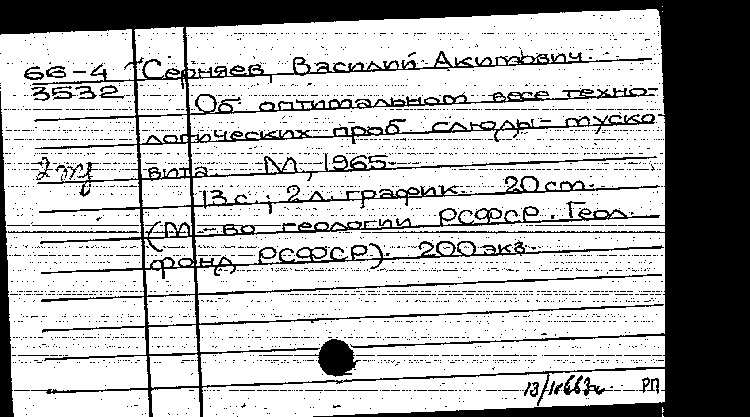 66-4 Серняев, Василий Акимович.
3532
Об оптимальном весе техно-
логических проб слюды-муско-
вита. М., 1965.
13 с.; 2 л. график. 20 см.
(М-во геологии РСФСР. Геол.
фонд РСФСР). 200 экз.
РП